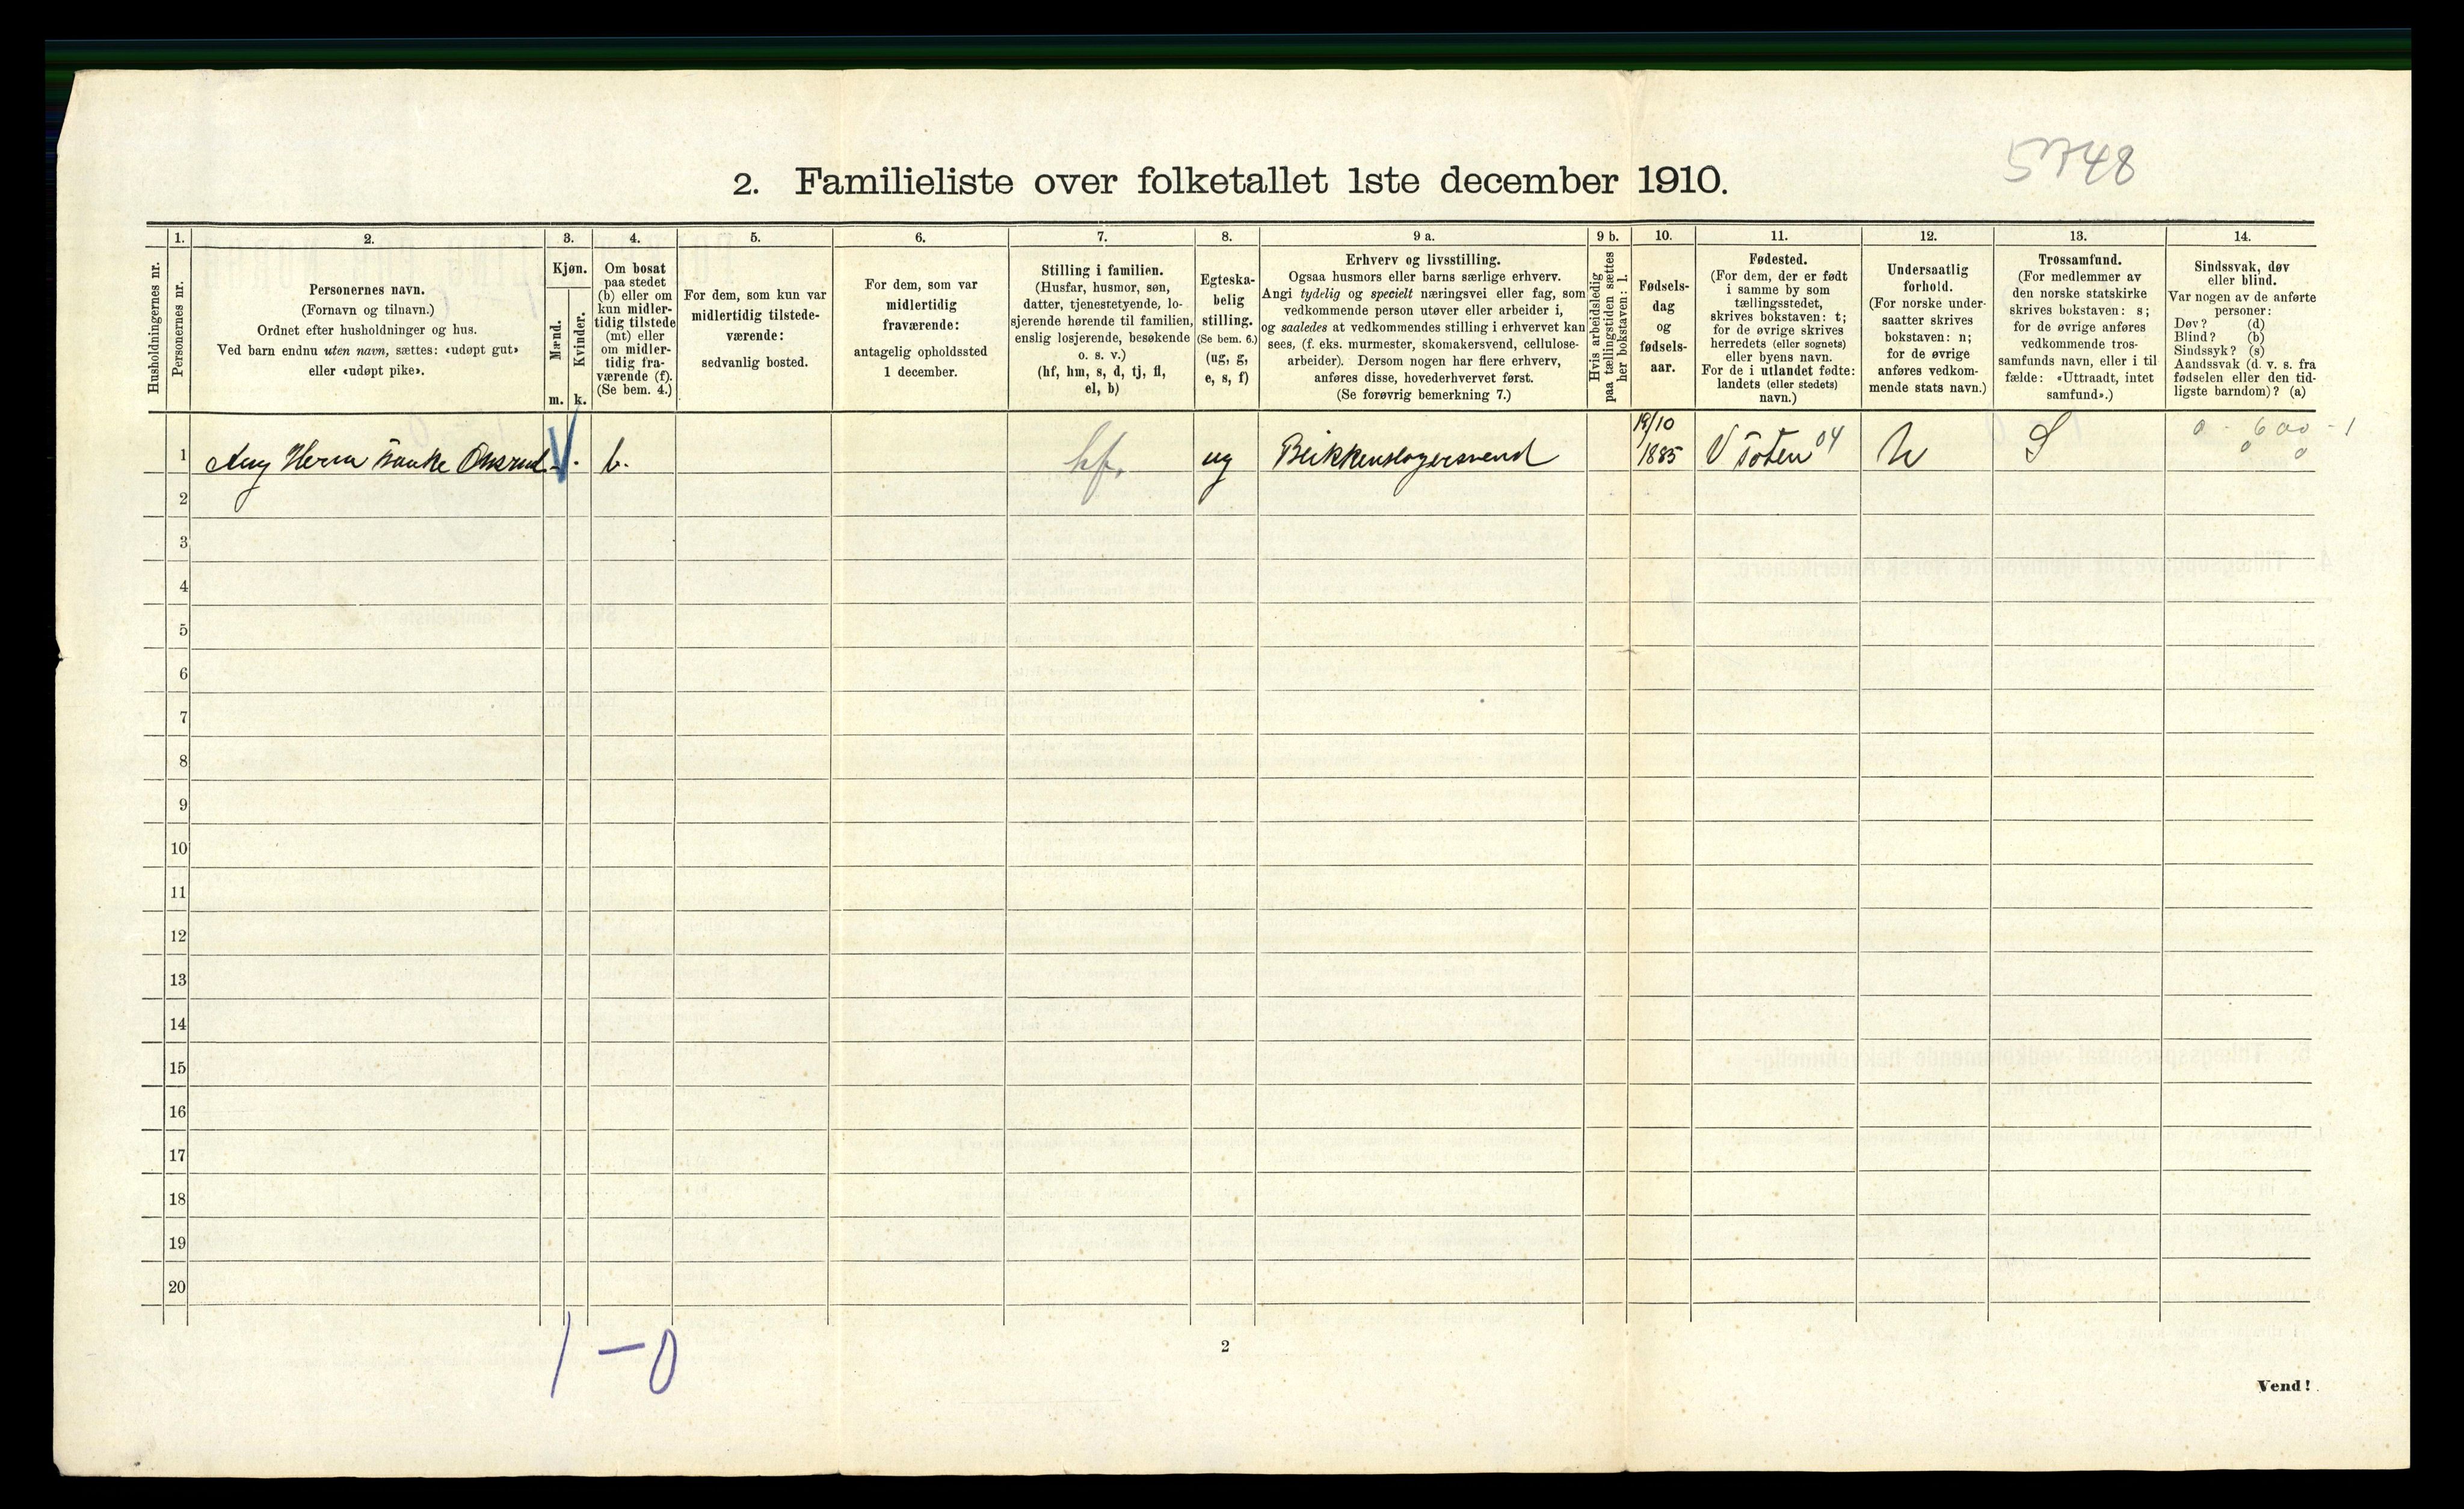 5748
2. Familieliste over folketallet 1ste december 1910.
Husholdningernes nr.
1.
Personernes nr.
2.
Personernes navn.
(Fornavn og tilnavn.)
Ordnet efter husholdninger og hus.
Ved barn endnu uten navn, sættes: «udøpt gut»
eller «udøpt pike».
3.
Kjøn.
Mænd.
Kvinder.
m. k.
4.
Om bosat
paa stedet
(b) eller om
kun midler-
tidig tilstede
(mt) eller
om midler-
tidig fra-
værende (f).
(Se bem. 4.)
5.
For dem, som kun var
midlertidig tilstede-
værende:
sedvanlig bosted.
6.
For dem, som var
midlertidig
fraværende:
antagelig opholdssted
1 december.
7.
Stilling i familien.
(Husfar, husmor, søn,
datter, tjenestetyende, lo-
sjerende hørende til familien,
enslig losjerende, besøkende
o. s. v.)
(hf, hm, s, d, tj, fl,
el, b)
8.
Egteska-
belig
stilling.
(Se bem. 6.)
(ug, g,
e, s, f)
9 a.
Erhverv og livsstilling.
Ogsaa husmors eller barns særlige erhverv.
Angi tydelig og specielt næringsvei eller fag, som
vedkommende person utøver eller arbeider i,
og saaledes at vedkommendes stilling i erhvervet kan
sees, (f. eks. murmester, skomakersvend, cellulose-
arbeider). Dersom nogen har flere erhverv,
anføres disse, hovederhvervet først.
(Se forøvrig bemerkning 7.)
9 b.
Hvis arbeidsledig
paa tællingstiden sættes
her bokstaven: l.
10.
Fødsels-
dag
og
fødsels-
aar.
11.
Fødested.
(For dem, der er født
i samme by som
tællingsstedet,
skrives bokstaven: t;
for de øvrige skrives
herredets (eller sognets)
eller byens navn.
For de i utlandet fødte:
landets (eller stedets)
navn.)
12.
Undersaatlig
forhold.
(For norske under-
saatter skrives
bokstaven: n;
for de øvrige
anføres vedkom-
mende stats navn.)
13.
Trossamfund.
(For medlemmer av
den norske statskirke
skrives bokstaven: s;
for de øvrige anføres
vedkommende tros-
samfunds navn, eller i til
fælde: «Uttraadt, intet
samfund».)
14.
Sindssvak, døv
eller blind.
Var nogen av de anførte
personer:
Døv? (d)
Blind? (b)
Sindssyk? (s)
Aandssvak (d. v. s. fra
fødselen eller den tid-
ligste barndom)? (a)
1 Aug Herm Onsrud V b. hf. ug Blikkenslagersvend 19/10 1885 V Toten 04 N S 0 - 600 - 1
0 0
2
3
4
5
6
7
8
9
10
11
12
13
14
15
16
17
18
19
20
1 - 0
2
Vend!